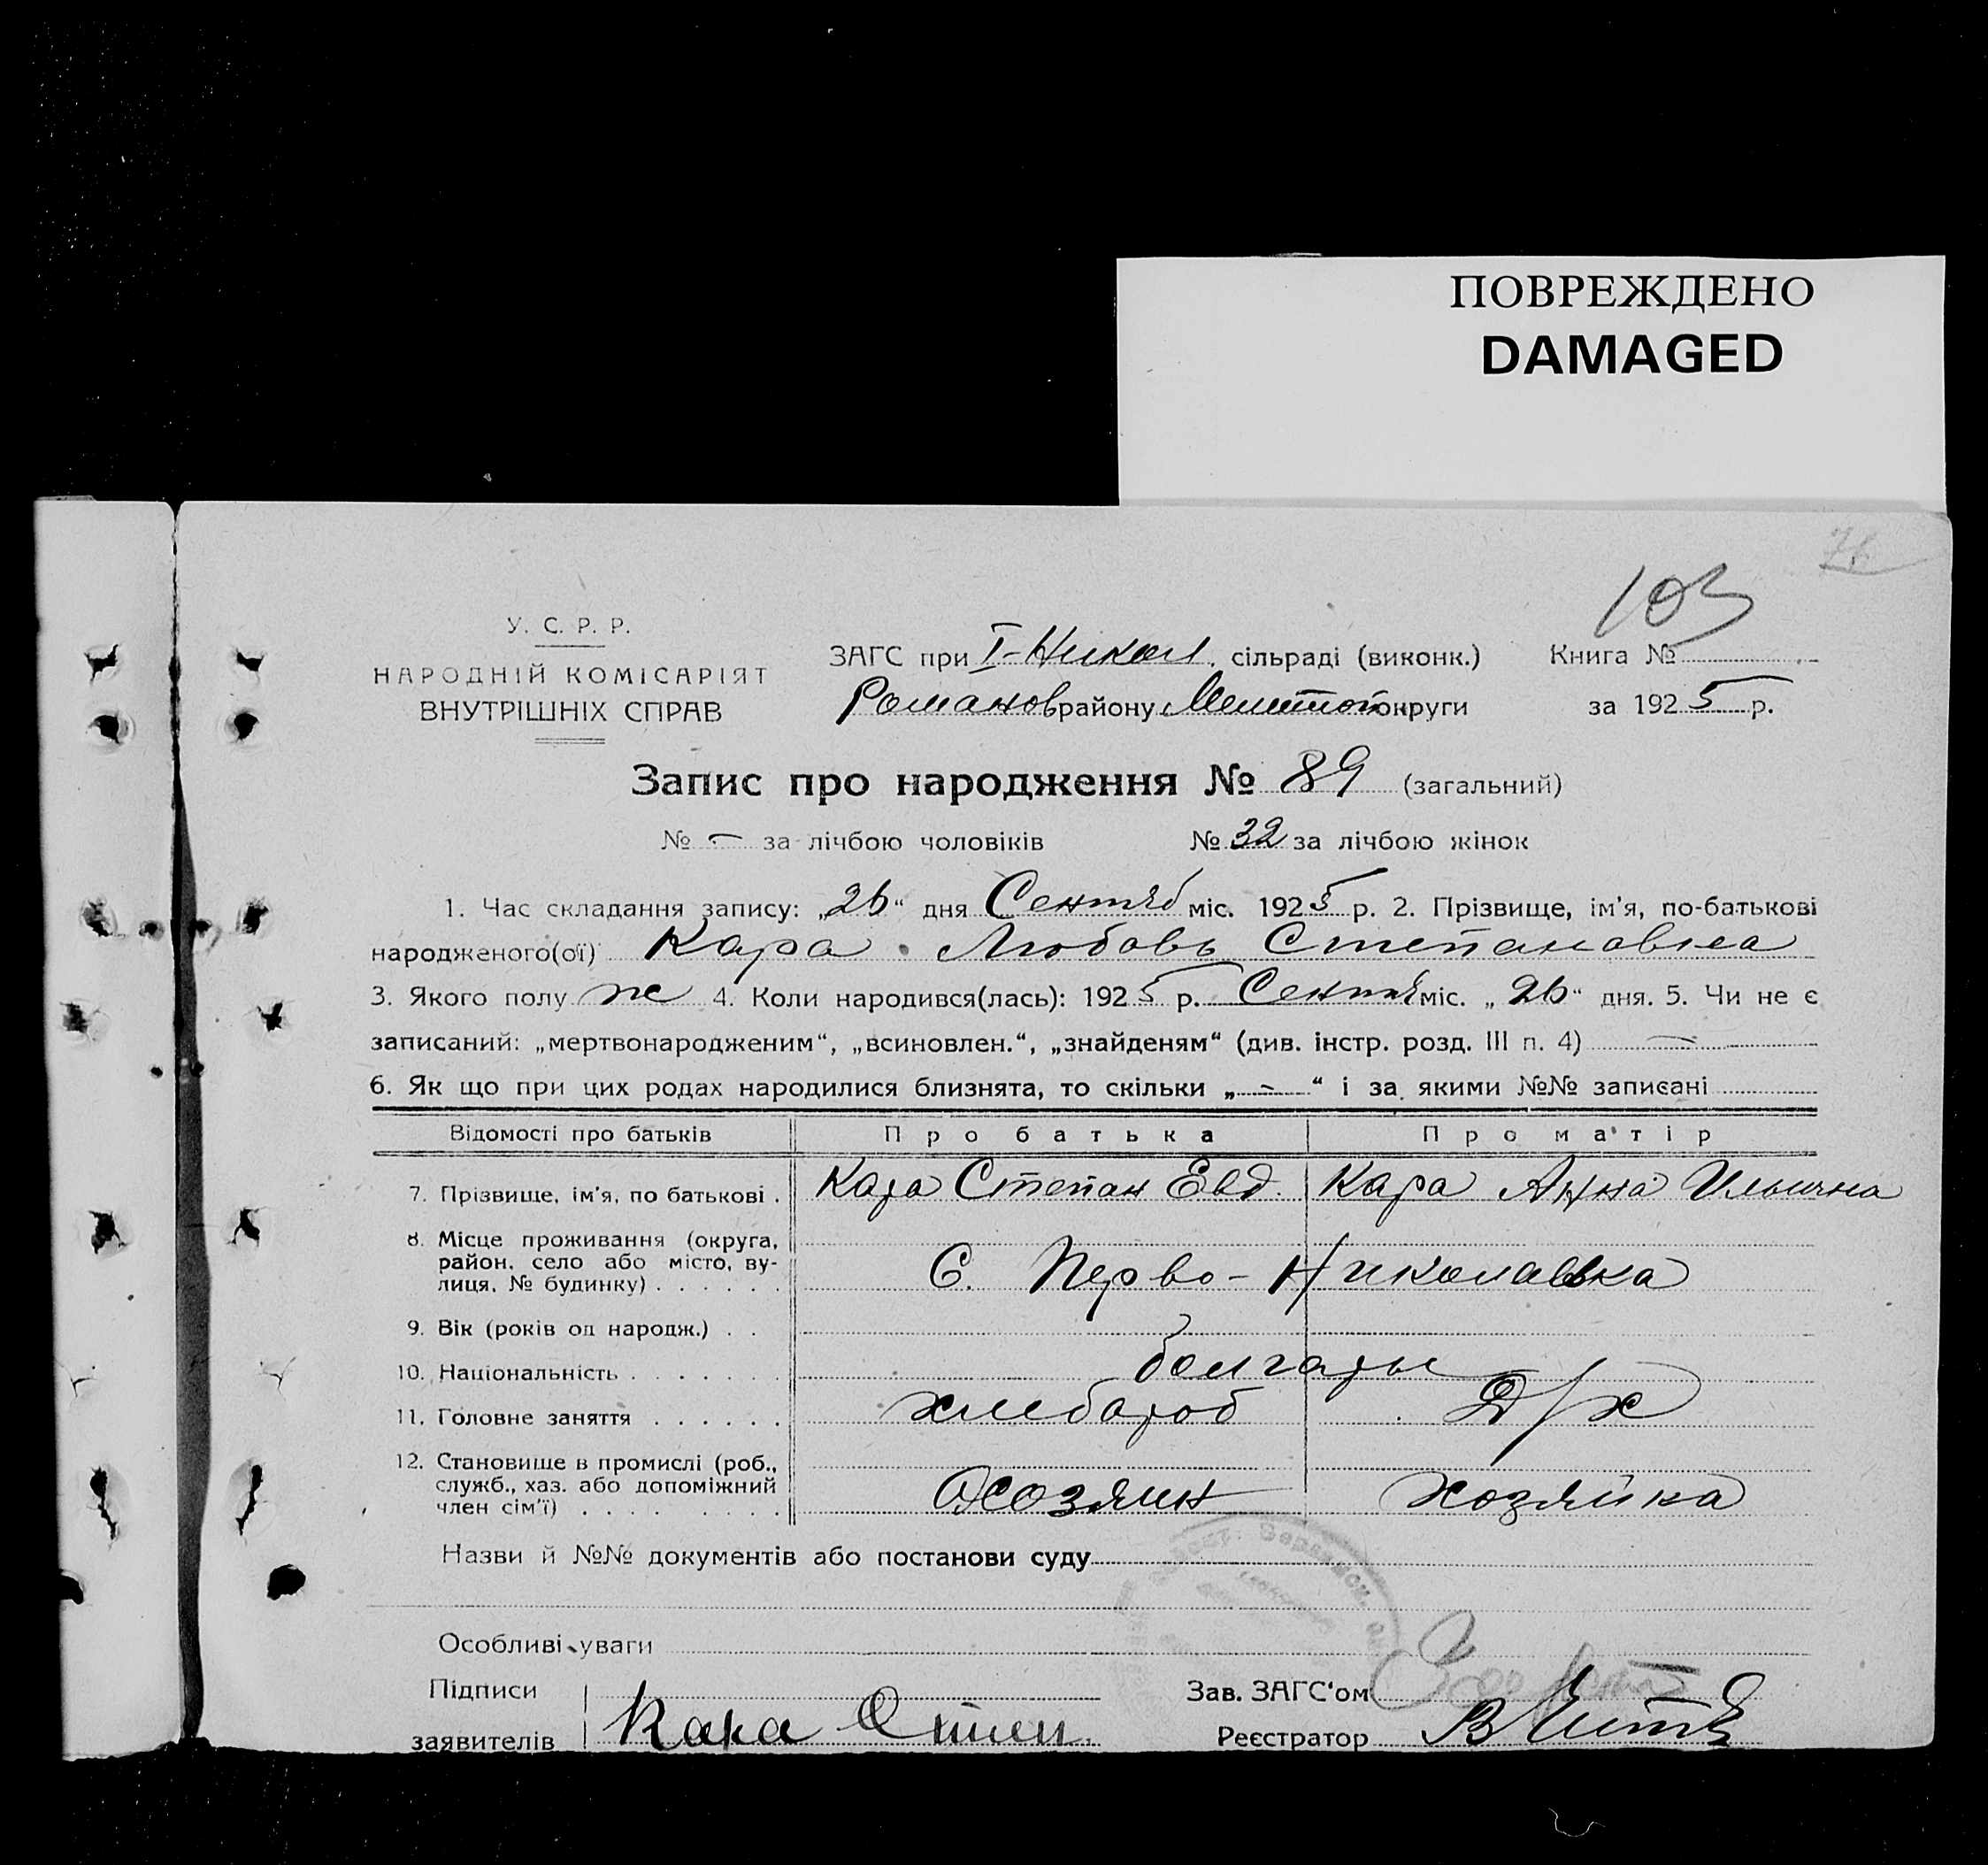 ПОВРЕЖДЕНО
DAMAGED
103
У. С. Р. Р.
НАРОДНІЙ КОМІСАРІЯТ
ВНУТРІШНІХ СПРАВ
ЗАГС при I-Никол. сільраді (виконк.)
Романов району Мелитоп округи
Книга №
за 1925 р.
Запис про народження № 89 (загальний)
№ - за лічбою чоловіків № 32 за лічбою жінок
1. Час складання запису: „26“ дня Сентяб міс. 1925 р. 2. Прізвище, ім'я, по-батькові
народженого(ої) Кара Любовь Степановна
3. Якого полу ж 4. Коли народився(лась): 1925 р. Сентя міс. „26“ дня. 5. Чи не є
записаний: „мертвонародженим“, „всиновлен.“, „знайденям“ (див. інстр. розд. III п. 4) —
6. Як що при цих родах народилися близнята, то скільки „-“ і за якими №№ записані
Відомості про батьків Про батька Про матір
7. Прізвище, ім'я, по батькові . Кара Степан Евд. Кара Анна Ильична
8. Місце проживання (округа,
район, село або місто, ву-
лиця, № будинку) . . . . . . С. Перво-Николаевка
9. Вік (років од народж.) . .
10. Національність . . . . . . . болгары
11. Головне заняття . . . . . . хлебороб Д/х
12. Становище в промислі (роб.,
служб., хаз. або допоміжний
член сім'ї) . . . . . . . . хозяин хозяйка
Назви й №№ документів або постанови суду
Особливі уваги
Підписи
заявителів Кара Степ.
Зав. ЗАГС'ом
Реєстратор